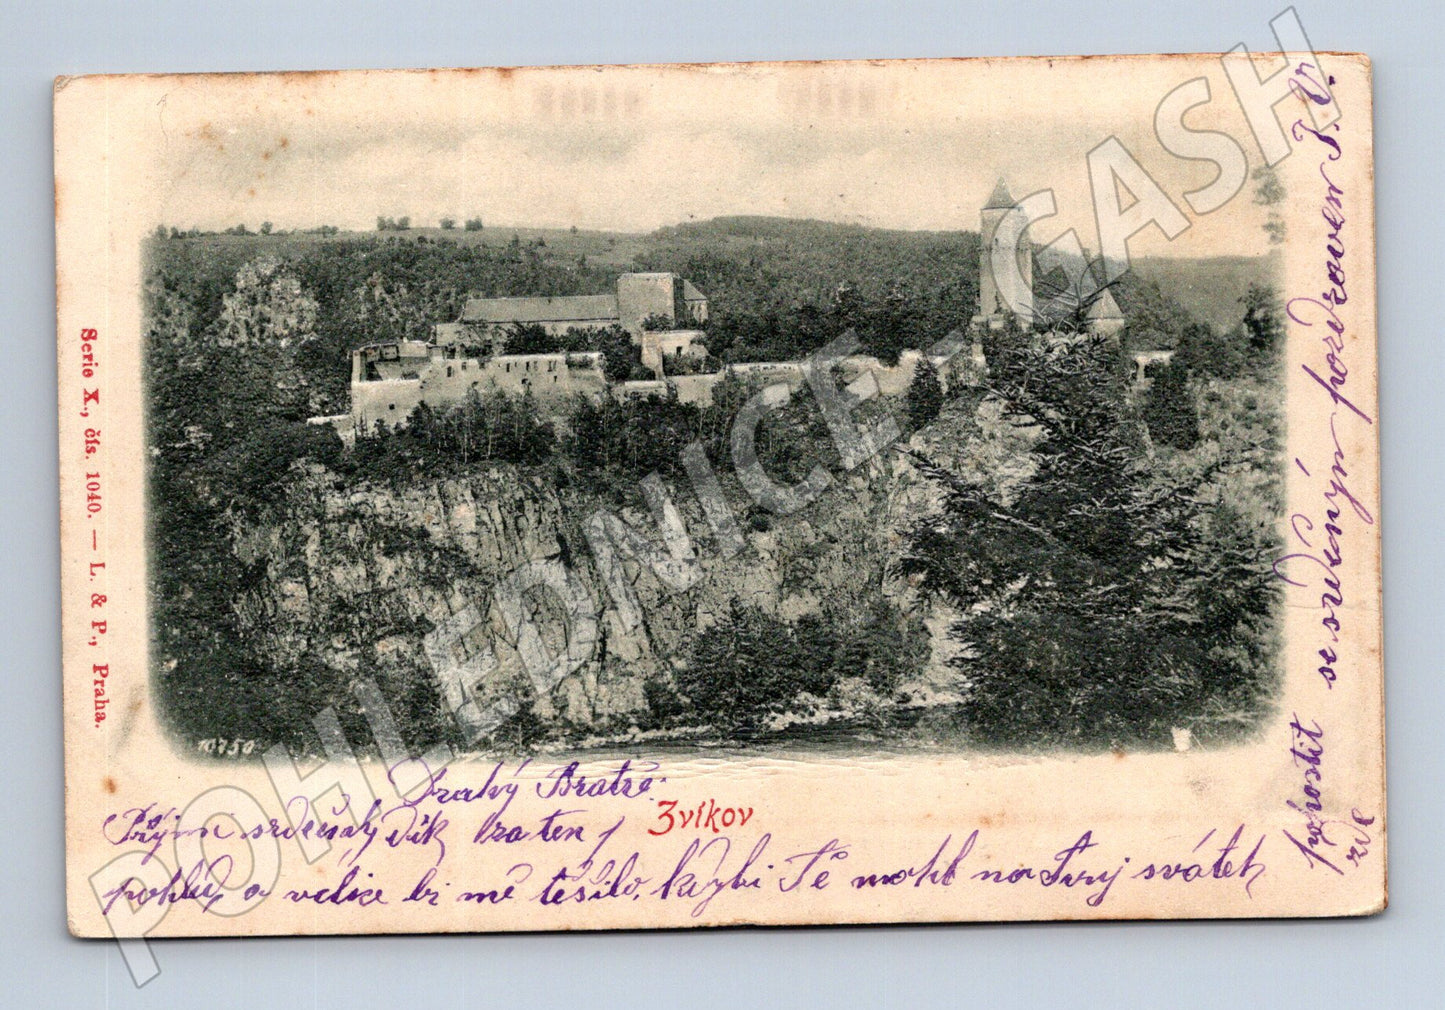 POHLEDNICE-GASH
Serie X., čís. 1040. — L. & P., Praha.
10750
Zvíkov
Drahý Bratře.
Přijmi srdečný dík za ten
pohled, a velice bi mě těšilo, kdybi Tě mohl na Tvuj svátek
pohostit
se srdečným pozdravem J. V.